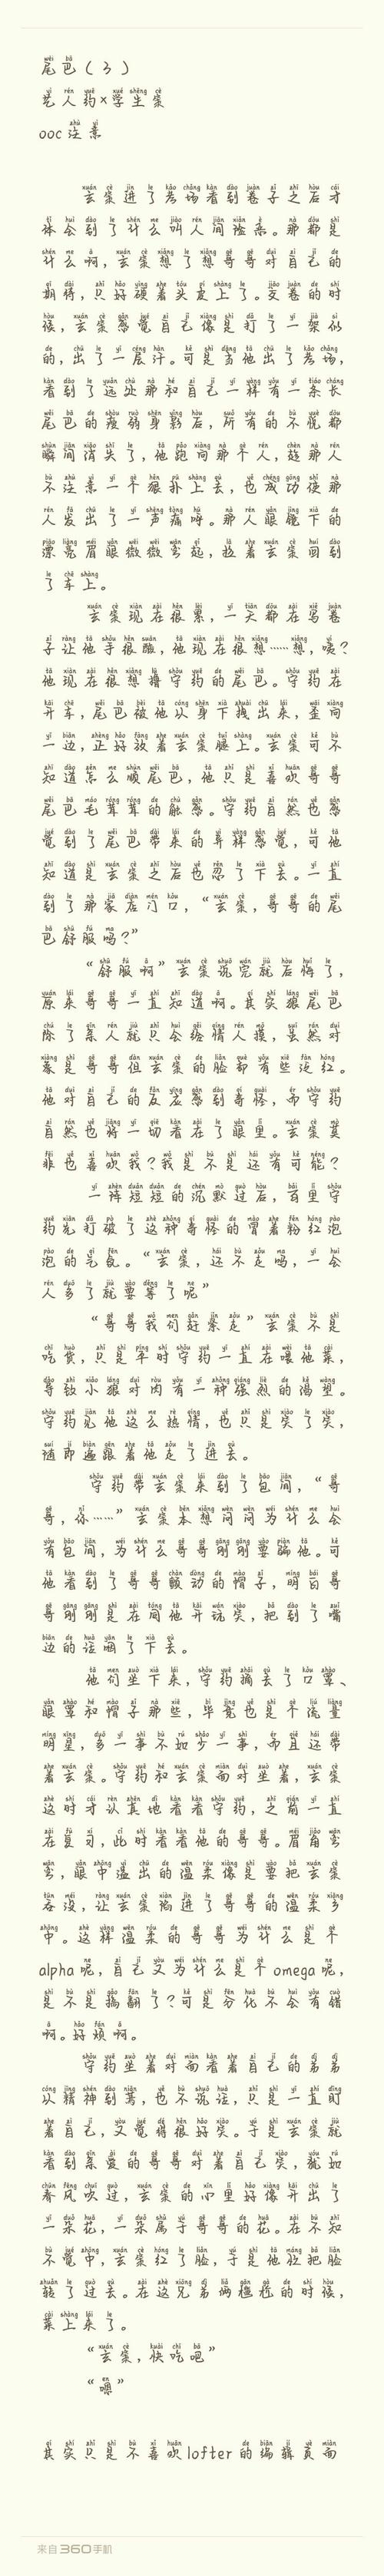 尾巴（3）
艺人约×学生策
ooc注意
玄策进了考场看到卷子之后才
体会到了什么叫人间险恶。那都是
什么啊，玄策想了想哥哥对自己的
期待，只好硬着头皮上了。交卷的时
候，玄策感觉自己像是打了一架似
的，出了一层汗。可是当他出了考场，
看到了远处那和自己一样有一条长
尾巴的瘦弱身影后，所有的不悦都
瞬间消失了，他跑向那个人，趁那人
不注意一个狠扑上去，也成功使那
人发出了一声痛呼。那人眼镜下的
漂亮眉眼微微弯起，拉着玄策回到
了车上。
玄策现在很累，一天都在写卷
子让他手很酸，他现在很想……想，咦？
他现在很想撸守约的尾巴。守约在
开车，尾巴被他从身下拽出来，歪向
一边，正好放着玄策腿上。玄策可不
知道怎么顺尾巴，他只是喜欢哥哥
尾巴毛茸茸的触感。守约自然也感
觉到了尾巴带来的异样感觉，可他
知道是玄策之后也忍了下去。一直
到了那家店门口，“玄策，哥哥的尾
巴舒服吗？”
“舒服啊”玄策说完就后悔了，
原来哥哥一直知道啊。其实狼尾巴
除了亲人就只会给情人摸，虽然对
象是哥哥但玄策的脸都有些泛红。
他对自己的反应感到奇怪，而守约
自然也将一切看在了眼里。玄策莫
非也喜欢我？我是不是还有可能？
一阵短短的沉默过后，百里守
约先打破了这种奇怪的冒着粉红泡
泡的气氛。“玄策，还不走吗，一会
人多了就要等了呢”
“哥哥我们赶紧走”玄策不是
吃货，只是平时守约一直在喂他菜，
导致小狼对肉有一种强烈的渴望。
守约见他这么热情，也只是笑了笑，
随即遍跟着他走了进去。
守约带玄策来到了包间，“哥
哥，你……”玄策本想问问为什么会
有包间，为什么哥哥刚刚要骗他。可
他看到了哥哥颤动的帽子，明白哥
哥刚刚是在同他开玩笑，把到了嘴
边的话咽了下去。
他们坐下来，守约摘去了口罩、
眼罩和帽子那些，毕竟也是个流量
明星，多一事不如少一事，而且还带
着玄策。守约和玄策面对坐着，玄策
这时才认真地看看守约，之前一直
在复习，此时看看他的哥哥。眉角弯
弯，眼中溢出的温柔像是要把玄策
吞没，让玄策陷进了哥哥的温柔乡
中。这样温柔的哥哥为什么是个
alpha呢，自己又为什么是个omega呢，
是不是搞翻了？可是分化不会有错
啊。好烦啊。
守约坐着对面看着自己的弟弟
从精神到蔫，也不说话，只是一直盯
着自己，又觉得很好笑。于是玄策就
看到亲爱的哥哥对着自己笑，犹如
春风吹过，玄策的心里好像开出了
一朵花，一朵属于哥哥的花。在不知
不觉中，玄策红了脸，于是他忙把脸
转了过去。在这兄弟俩尴尬的时候，
菜上来了。
“玄策，快吃吧”
“嗯”
其实只是不喜欢lofter的编辑页面
来自360手机